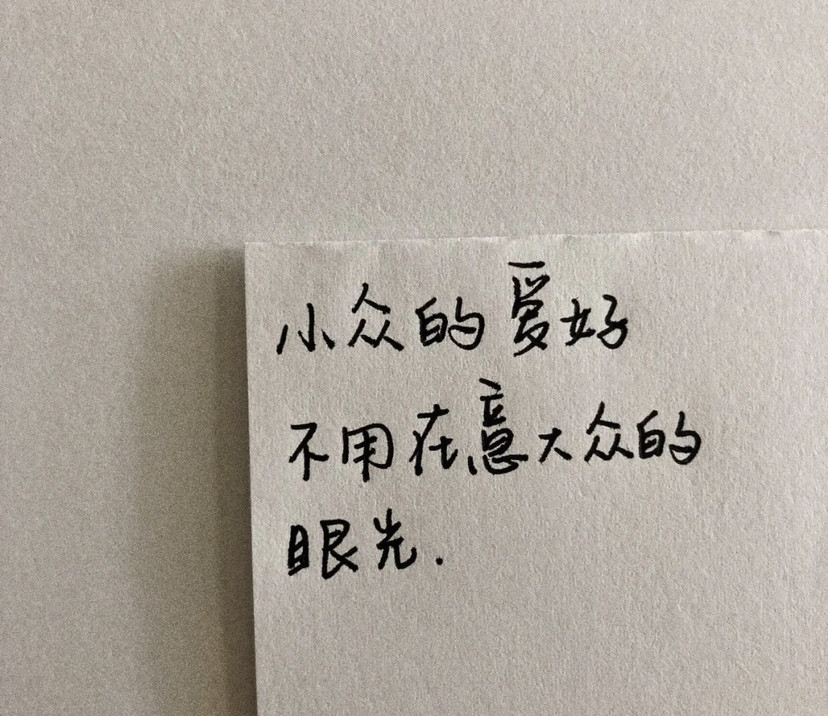 小众的爱好
不用在意大众的
眼光.